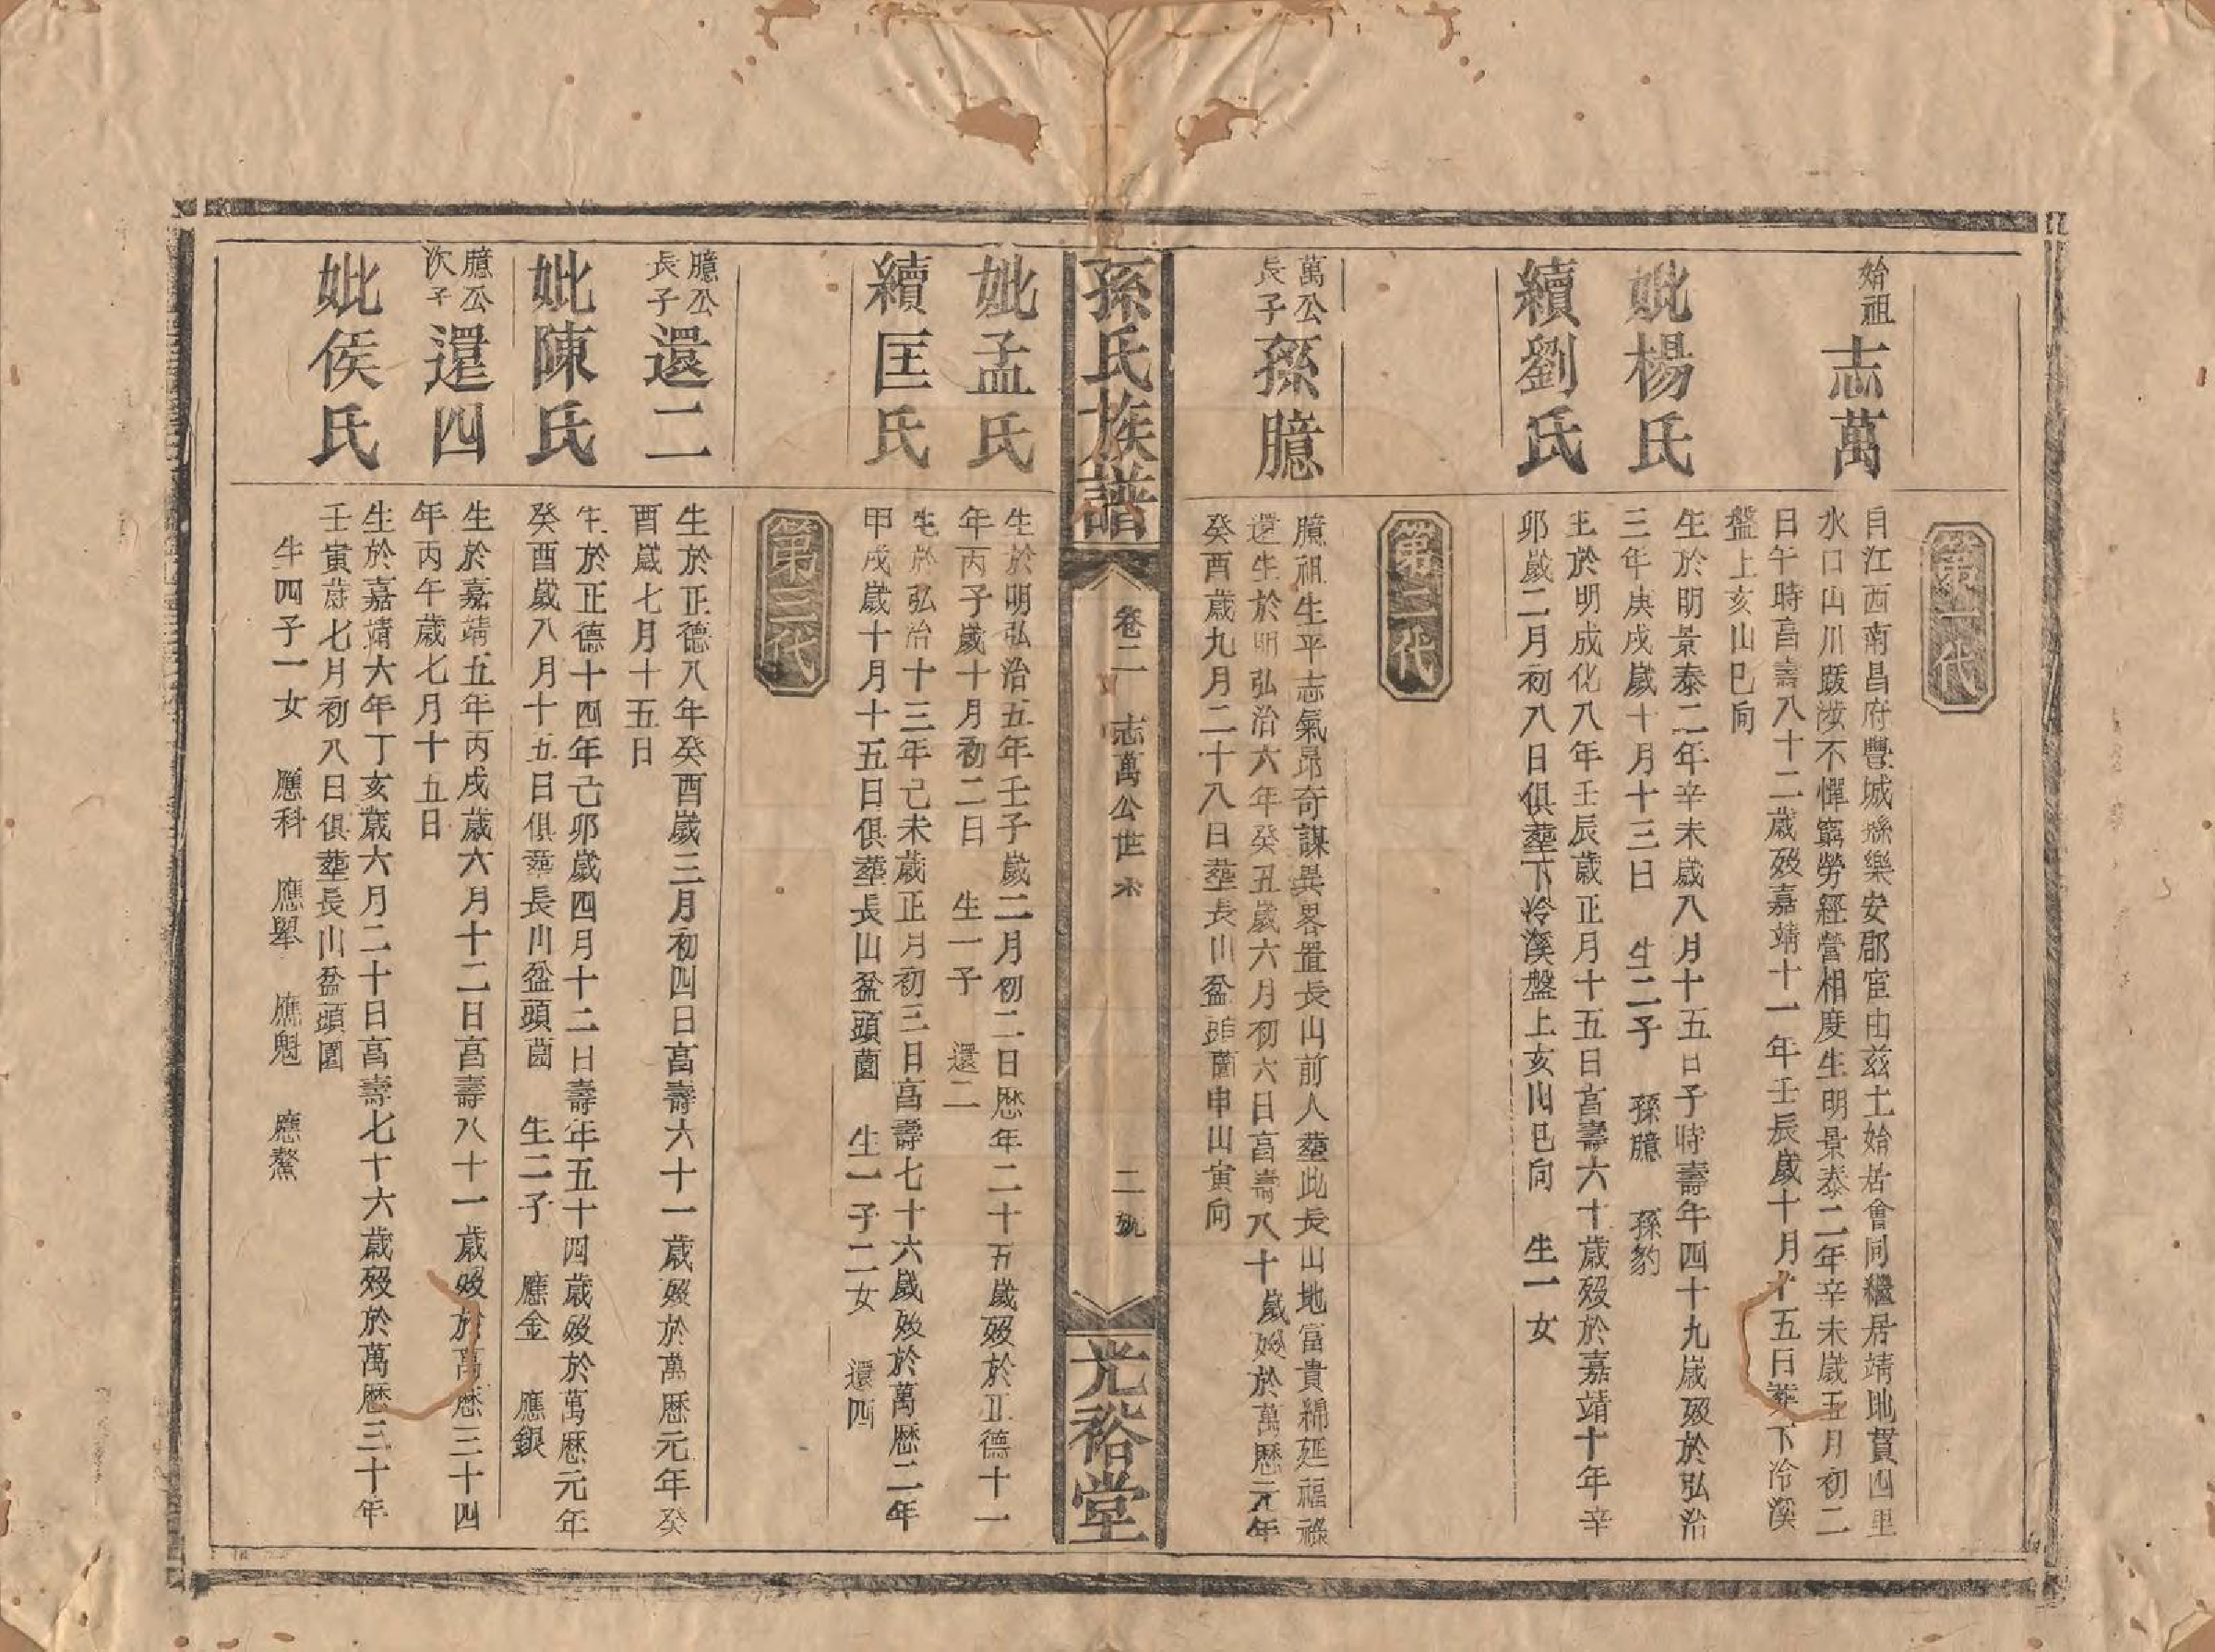 第一代
始祖 志萬
自江西南昌府豐城縣樂安郡宦由茲土始居會同繼居靖地貫四里
水口山川跋涉不憚窮勞經營相度生明景泰二年辛未歲五月初二
日午時高壽八十二歲歿嘉靖十一年壬辰歲十月十五日塟下冷溪
盤上亥山巳向
妣楊氏
生於明景泰二年辛未歲八月十五日子時壽年四十九歲歿於弘治
三年庚戌歲十月十三日 生二子 孫臆 孫豹
續劉氏
生於明成化八年壬辰歲正月十五日高壽六十歲歿於嘉靖十年辛
卯歲二月初八日俱塟下冷溪盤上亥山巳向 生一女
第二代
萬公長子 孫臆
臆祖生平志氣昂奇謀異畧置長山前人塟此長山地富貴綿延福祿
還生於明弘治六年癸丑歲六月初六日高壽八十歲歿於萬歷元年
癸酉歲九月二十八日塟長川盆頭薗申山寅向
孫氏族譜 卷二 志萬公世系 二號 光裕堂
妣孟氏
生於明弘治五年壬子歲二月初二日歷年二十五歲歿於正德十一
年丙子歲十月初二日 生一子 還二
續匡氏
生於弘治十三年己未歲正月初三日高壽七十六歲歿於萬歷二年
甲戌歲十月十五日俱塟長山盆頭薗 生一子二女 還四
第三代
臆公長子 還二
生於正德八年癸酉歲三月初四日高壽六十一歲歿於萬歷元年癸
酉歲七月十五日
妣陳氏
生於正德十四年己卯歲四月十二日壽年五十四歲歿於萬歷元年
癸酉歲八月十五日俱塟長川盆頭薗 生二子 應金 應銀
臆公次子 還四
生於嘉靖五年丙戌歲六月十二日高壽八十一歲歿於萬歷三十四
年丙午歲七月十五日
妣侯氏
生於嘉靖六年丁亥歲六月二十日高壽七十六歲歿於萬歷三十年
壬寅歲七月初八日俱塟長川盆頭園
生四子一女 應科 應舉 應魁 應鰲